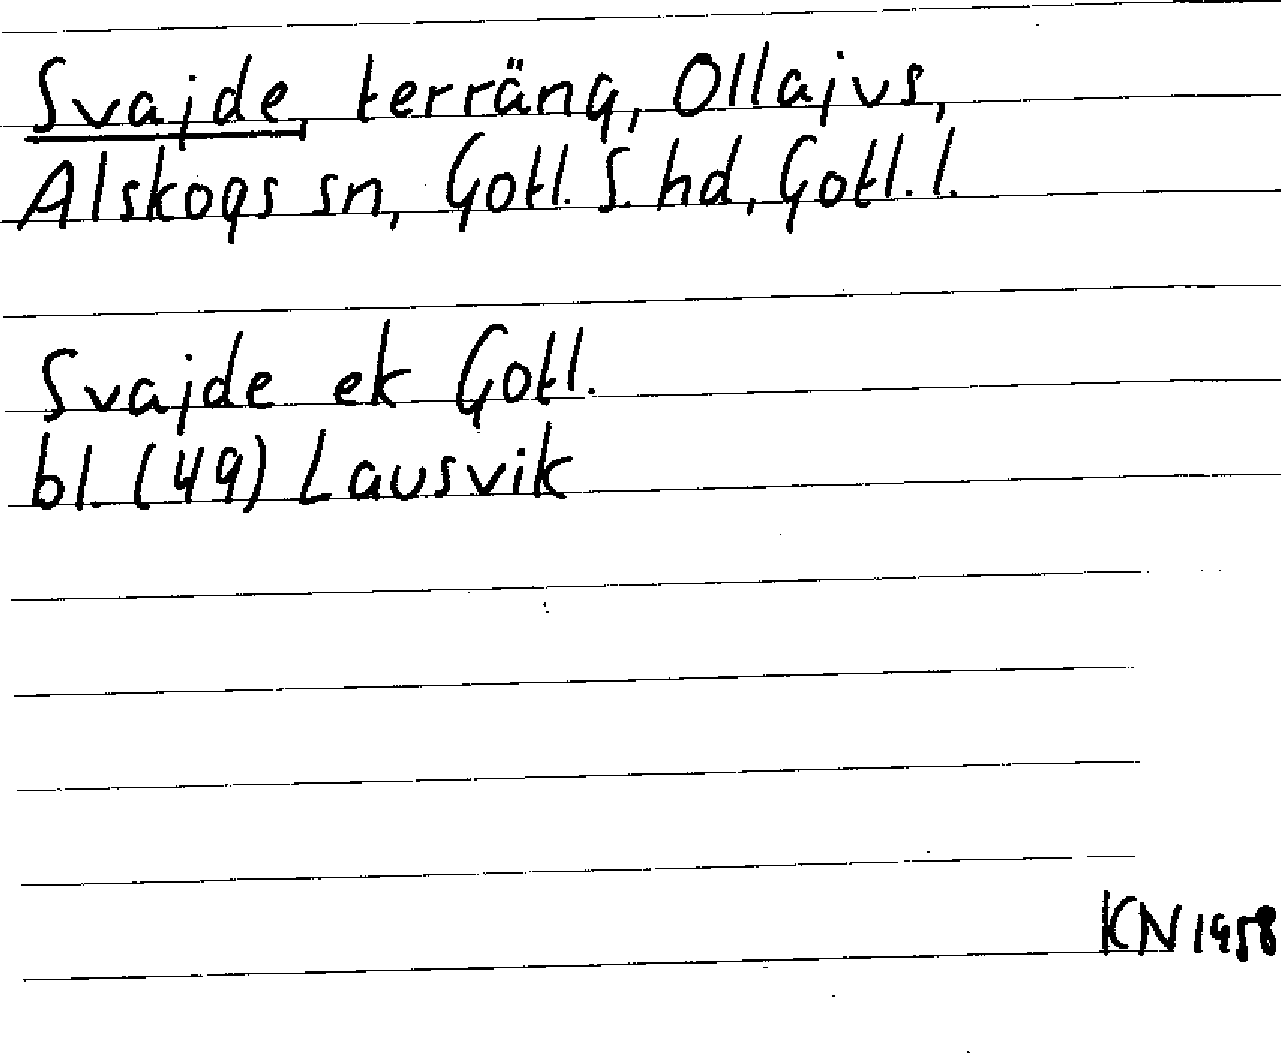 Svajde, terräng, Ollajvs,
Alskogs sn, Gotl. S. hd, Gotl. l.
Svajde ek Gotl.
bl. (49) Lausvik
KN 1958